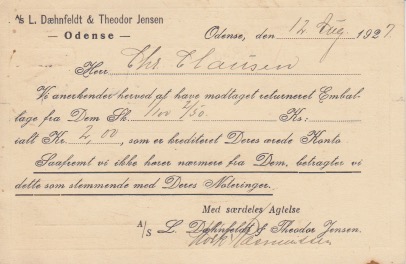 A/s L. Dæhnfeldt & Theodor Jensen
— Odense —
Odense, den 12 Aug. 1927
Herr Chr Clausen
Vi anerkender herved af have modtaget returneret Embal-
lage fra Dem Sk. Ks:
ialt Kr. 2,00, som er krediteret Deres ærede Konto
Saafremt vi ikke hører nærmere fra Dem, betragter vi
dette som stemmende med Deres Noteringer.
Med særdeles Agtelse
A/S L. Dæhnfeldt & Theodor Jensen.
Rasmussen